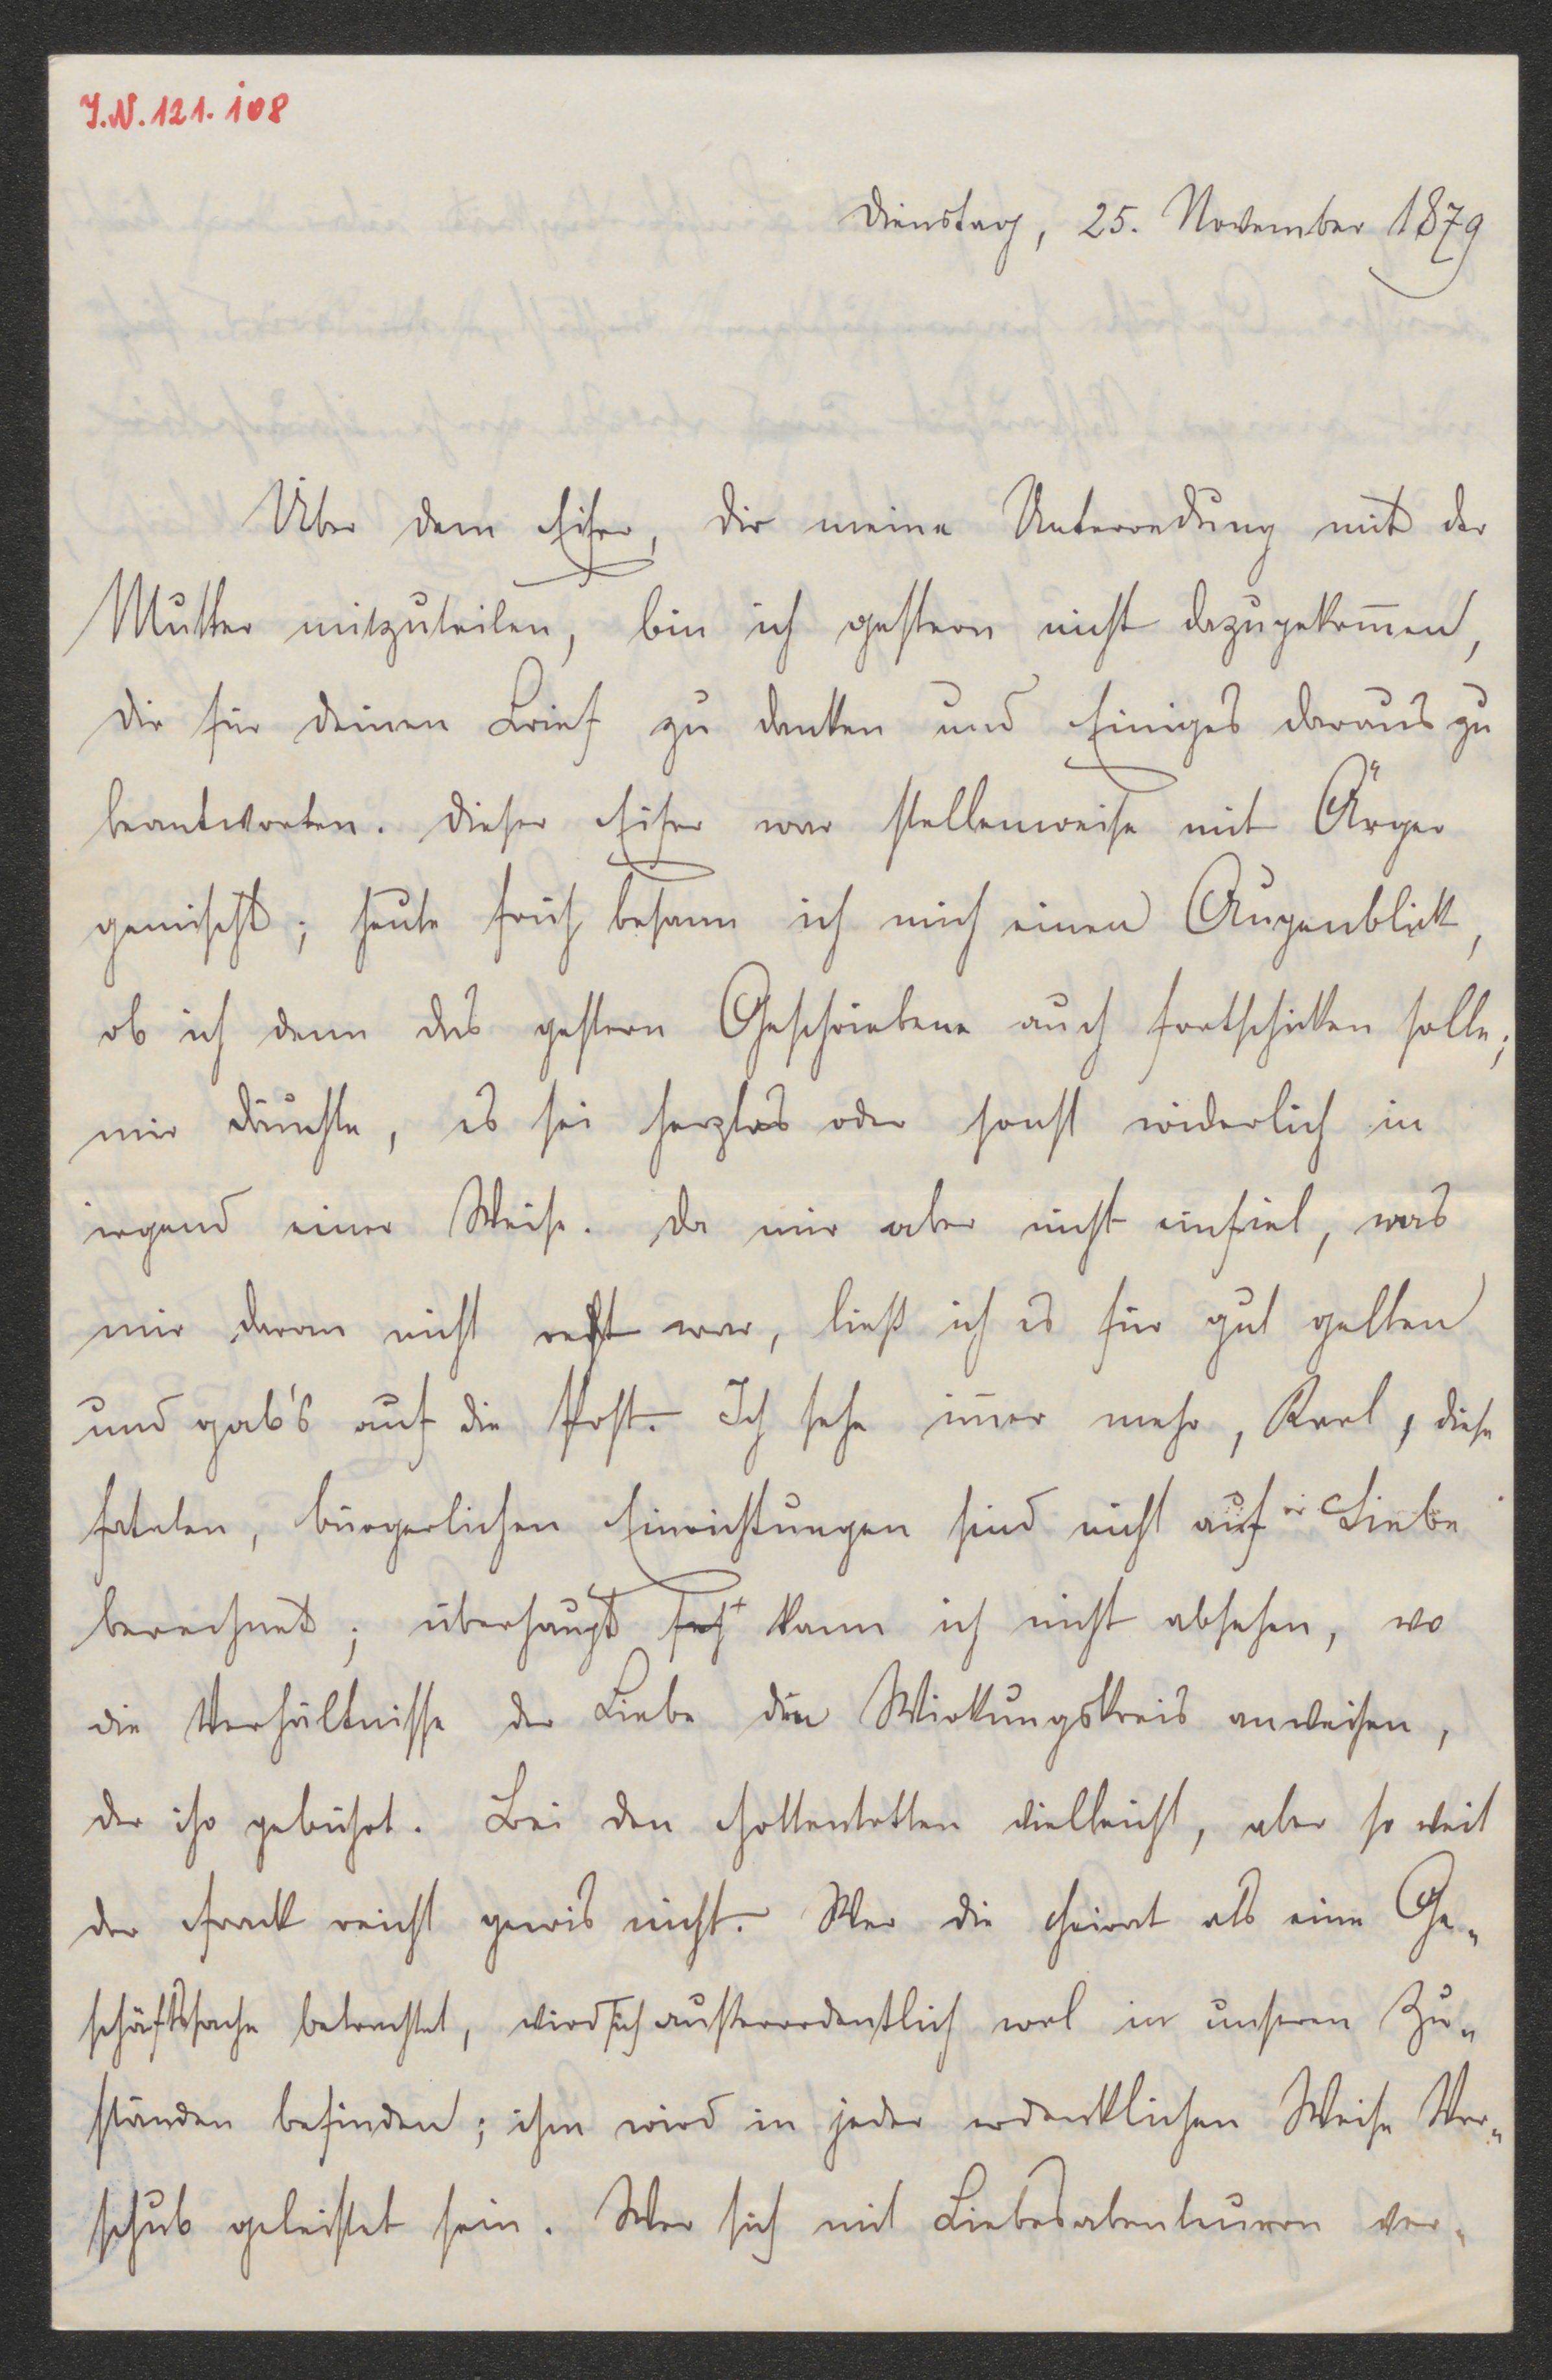 J.N. 121.108
Dienstag, 25. November 1879
Über dem Eifer, dir meine Unterredung mit der
Mutter mitzuteilen, bin ich gestern nicht dazugekom̄en,
dir für deinen Brief zu danken und Einiges daraus zu
beantworten. Dieser Eifer war stellenweise mit Ärger
gemischt; heute früh besann ich mich einen Augenblick,
ob ich denn das gestern Geschriebene auch fortschicken solle;
mir däuchte, es sei herzlos oder sonst widerlich in
irgend einer Weise. Da mir aber nicht einfiel, was
mir daran nicht recht war, ließ ich es für gut gelten
und gab's auf die Post. Ich sehe im̄er mehr, Karl, diese
fatalen, bürgerlichen Einrichtungen sind nicht auf Liebe
berechnet; überhaupt kann ich nicht absehen, wo
die Verhältnisse der Liebe den Wirkungskreis anweisen,
der ihr gebührt. Bei den Hottentotten vielleicht, aber so weit
der Frack reicht gewis nicht. Wer die Heirat als eine Ge-
schäftssache betrachtet, wird sich austerordentlich wol in unseren Zu-
ständen befinden; ihm wird in jeder erdenklichen Weise Vor-
schub geleistet sein. Wer sich mit Liebesabenteuern ver-